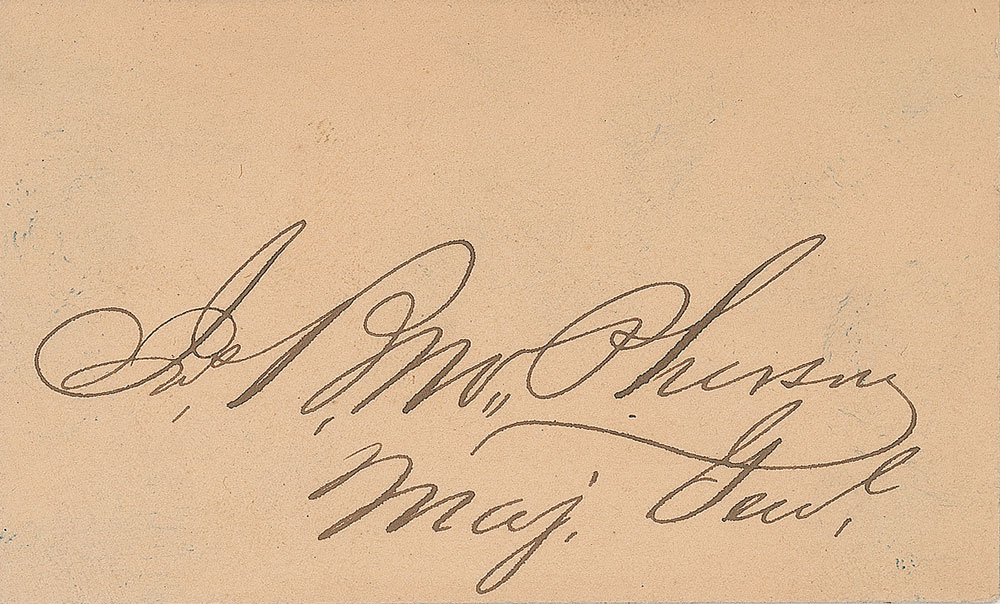 Jas. B. McPherson
Maj. Genl.